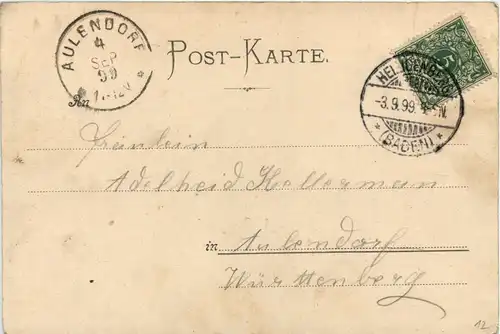 AULENDORF
4
SEP
99
POST-KARTE.
HEILIGENBERG
-3.9.99.
(BADEN)
An
Fräulein
Adelheid Kellerman
in Aulendorf
Württenberg
12